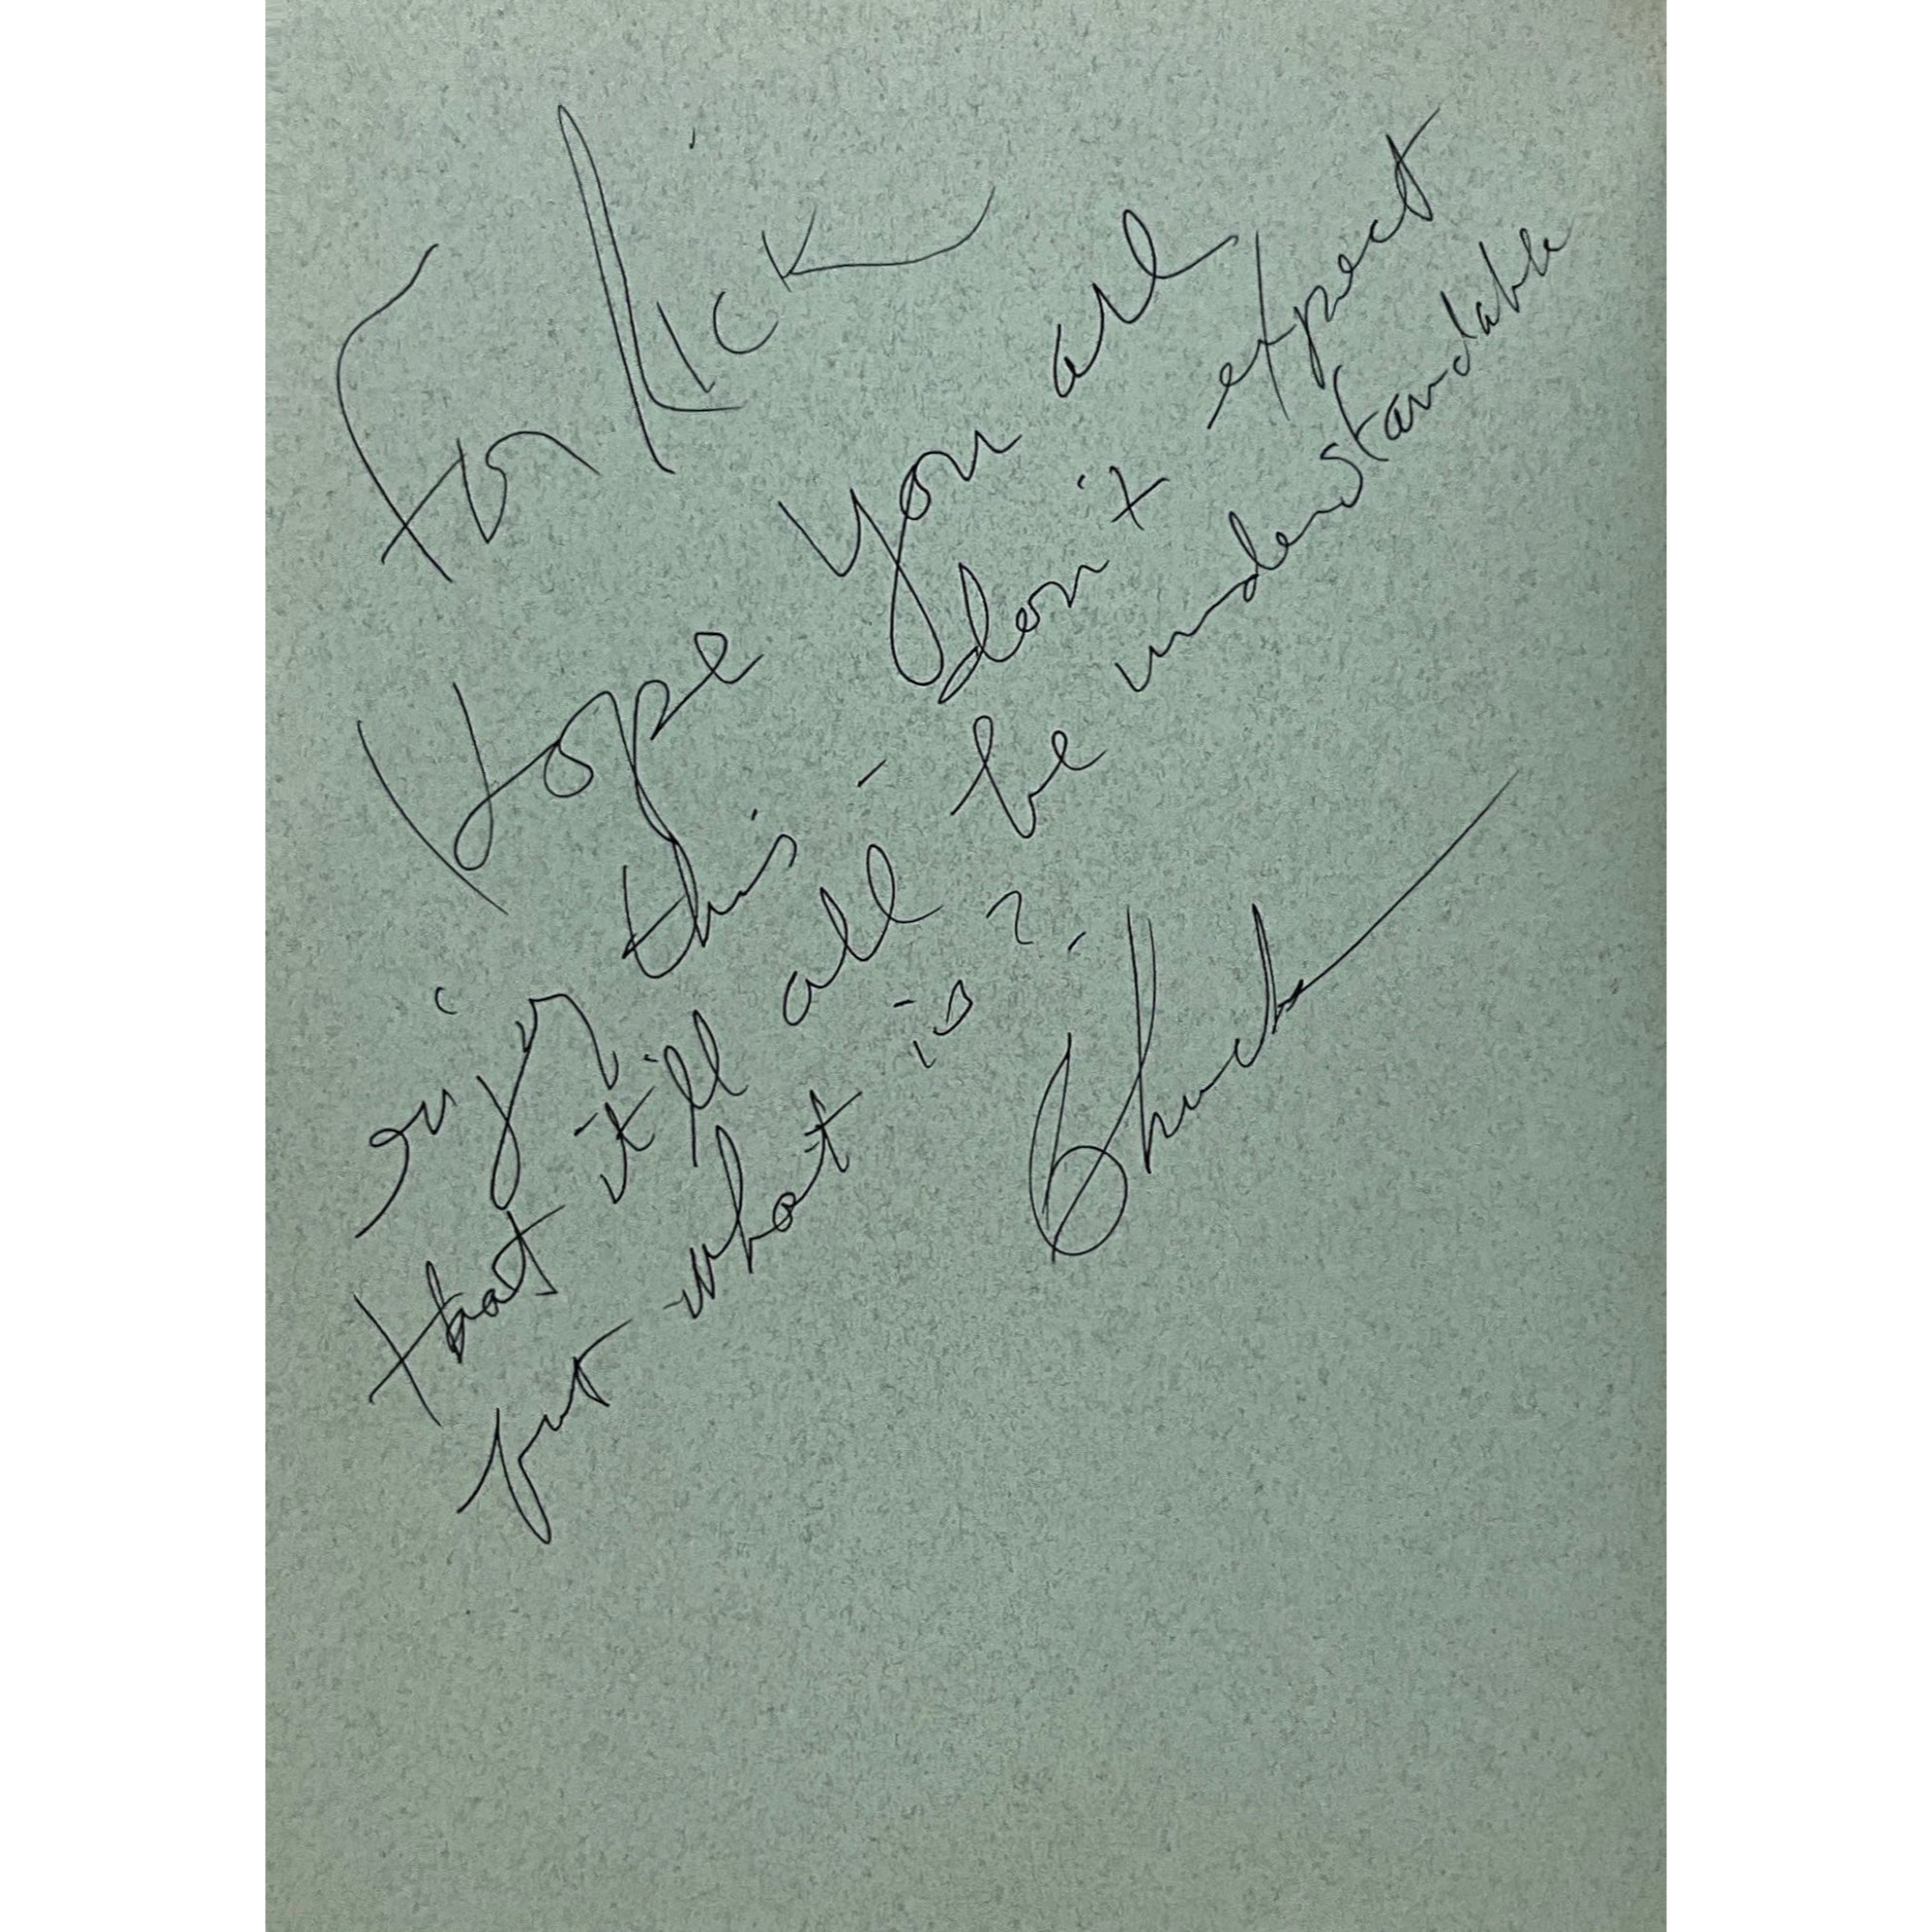 For Rick
Hope you all
enjoy this - don't expect
that it'll all be understandable
but what is?
Chuck